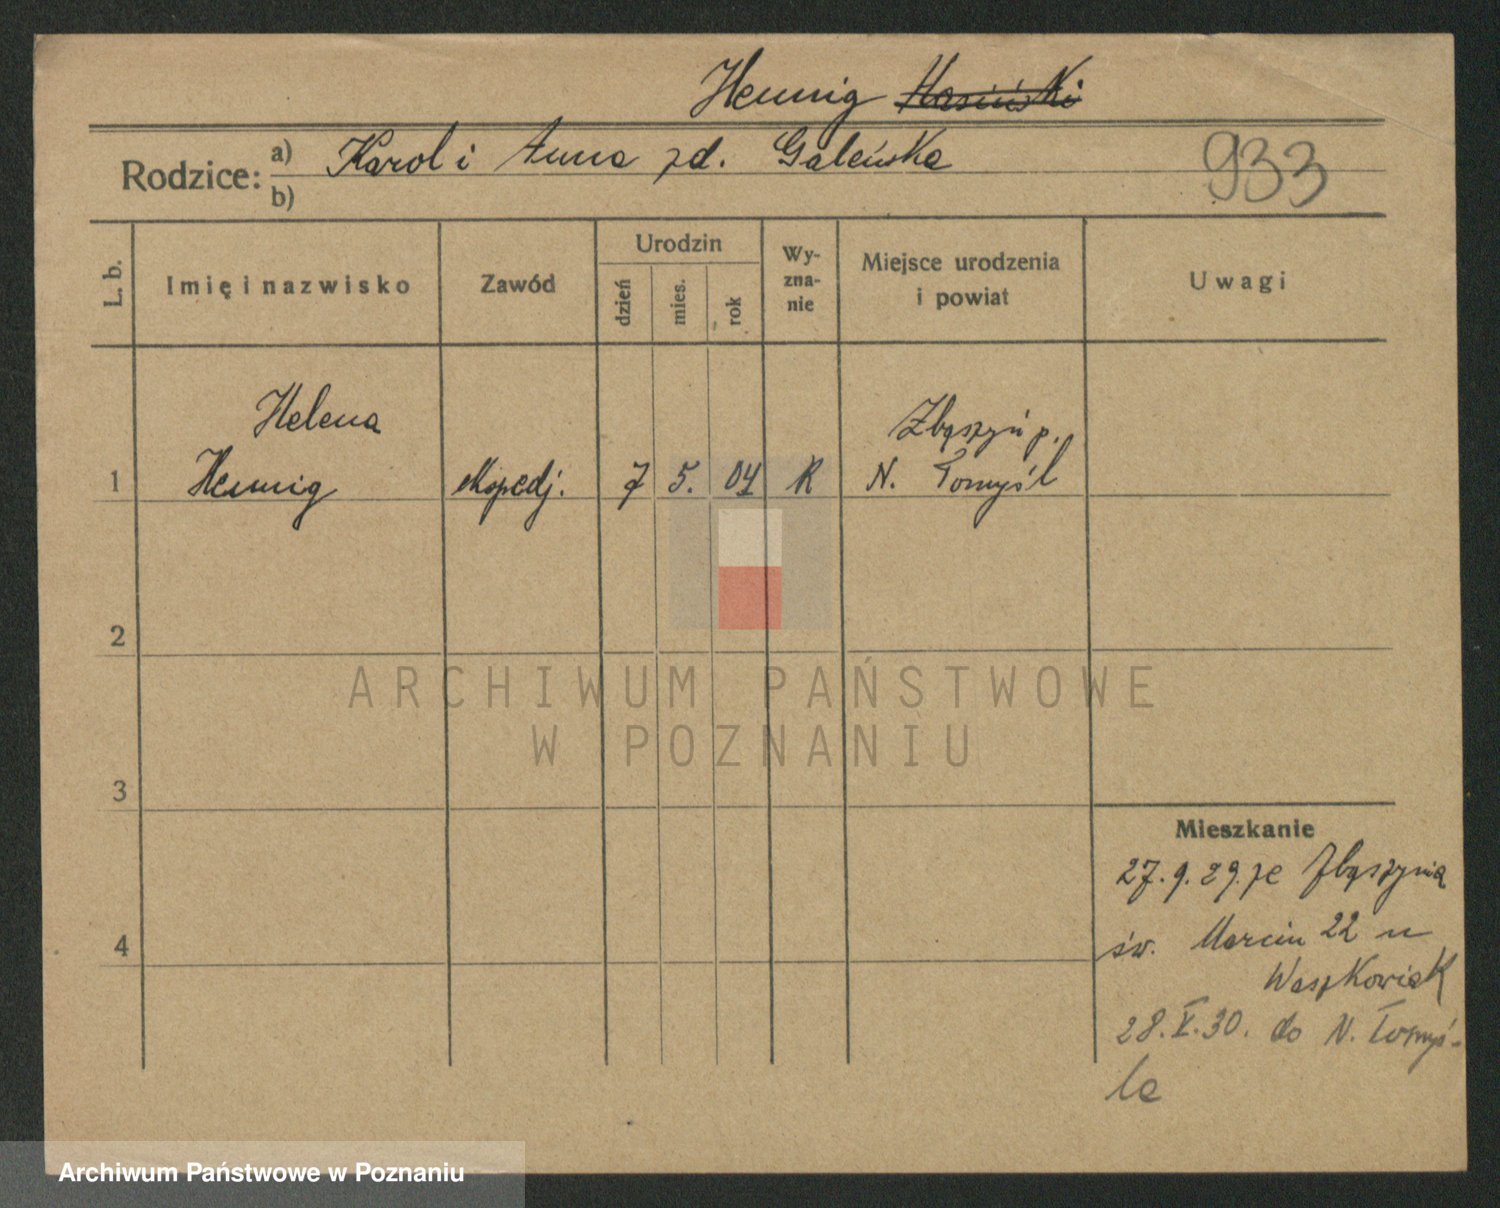 Hennig
Rodzice: a) Karol i Anna zd. Galeńska
b)
933
L. b.
Imię i nazwisko
Zawód
Urodzin
dzień
mies.
rok
Wy-
zna-
nie
Miejsce urodzenia
i powiat
Uwagi
Helena
Zbąszyń p.
1 Hennig ekspedj. 7 5. 04 R N. Tomyśl
2
3
4
Mieszkanie
27.9.29. ze Zbąszynia
św. Marcin 22 u
Waszkowiak
28.V.30. do N. Tomyś-
la
ARCHIWUM PAŃSTWOWE
W POZNANIU
Archiwum Państwowe w Poznaniu